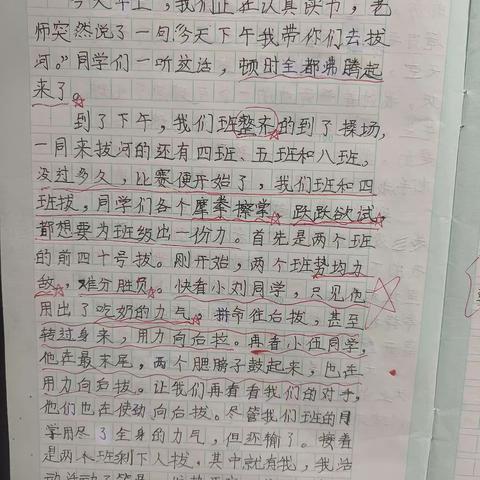 今天早上，我们正在认真读书，老
师突然说了一句“今天下午我带你们去拔
河。”同学们一听这话，顿时全都沸腾起
来了。
到了下午，我们班整齐的到了操场，
一同来拔河的还有四班、五班和八班。
没过多久，比赛便开始了，我们班和四
班拔，同学们各个摩拳擦掌，跃跃欲试
都想要为班级出一份力。首先是两个班
的前四十号拔。刚开始，两个班势均力
敌，难分胜负。快看小刘同学，只见他
用出了吃奶的力气。拼命往右拔，甚至
转过身来，用力向右拉。再看小伍同学，
他在最末尾，两个腮膀子鼓起来，也在
用力向右拔。让我们再看看我们的对手，
他们也在使劲向向拔。尽管我们班的同
学用尽了全身的力气，但还输了。接着
是两个班剩下人拔，其中就有我，我活